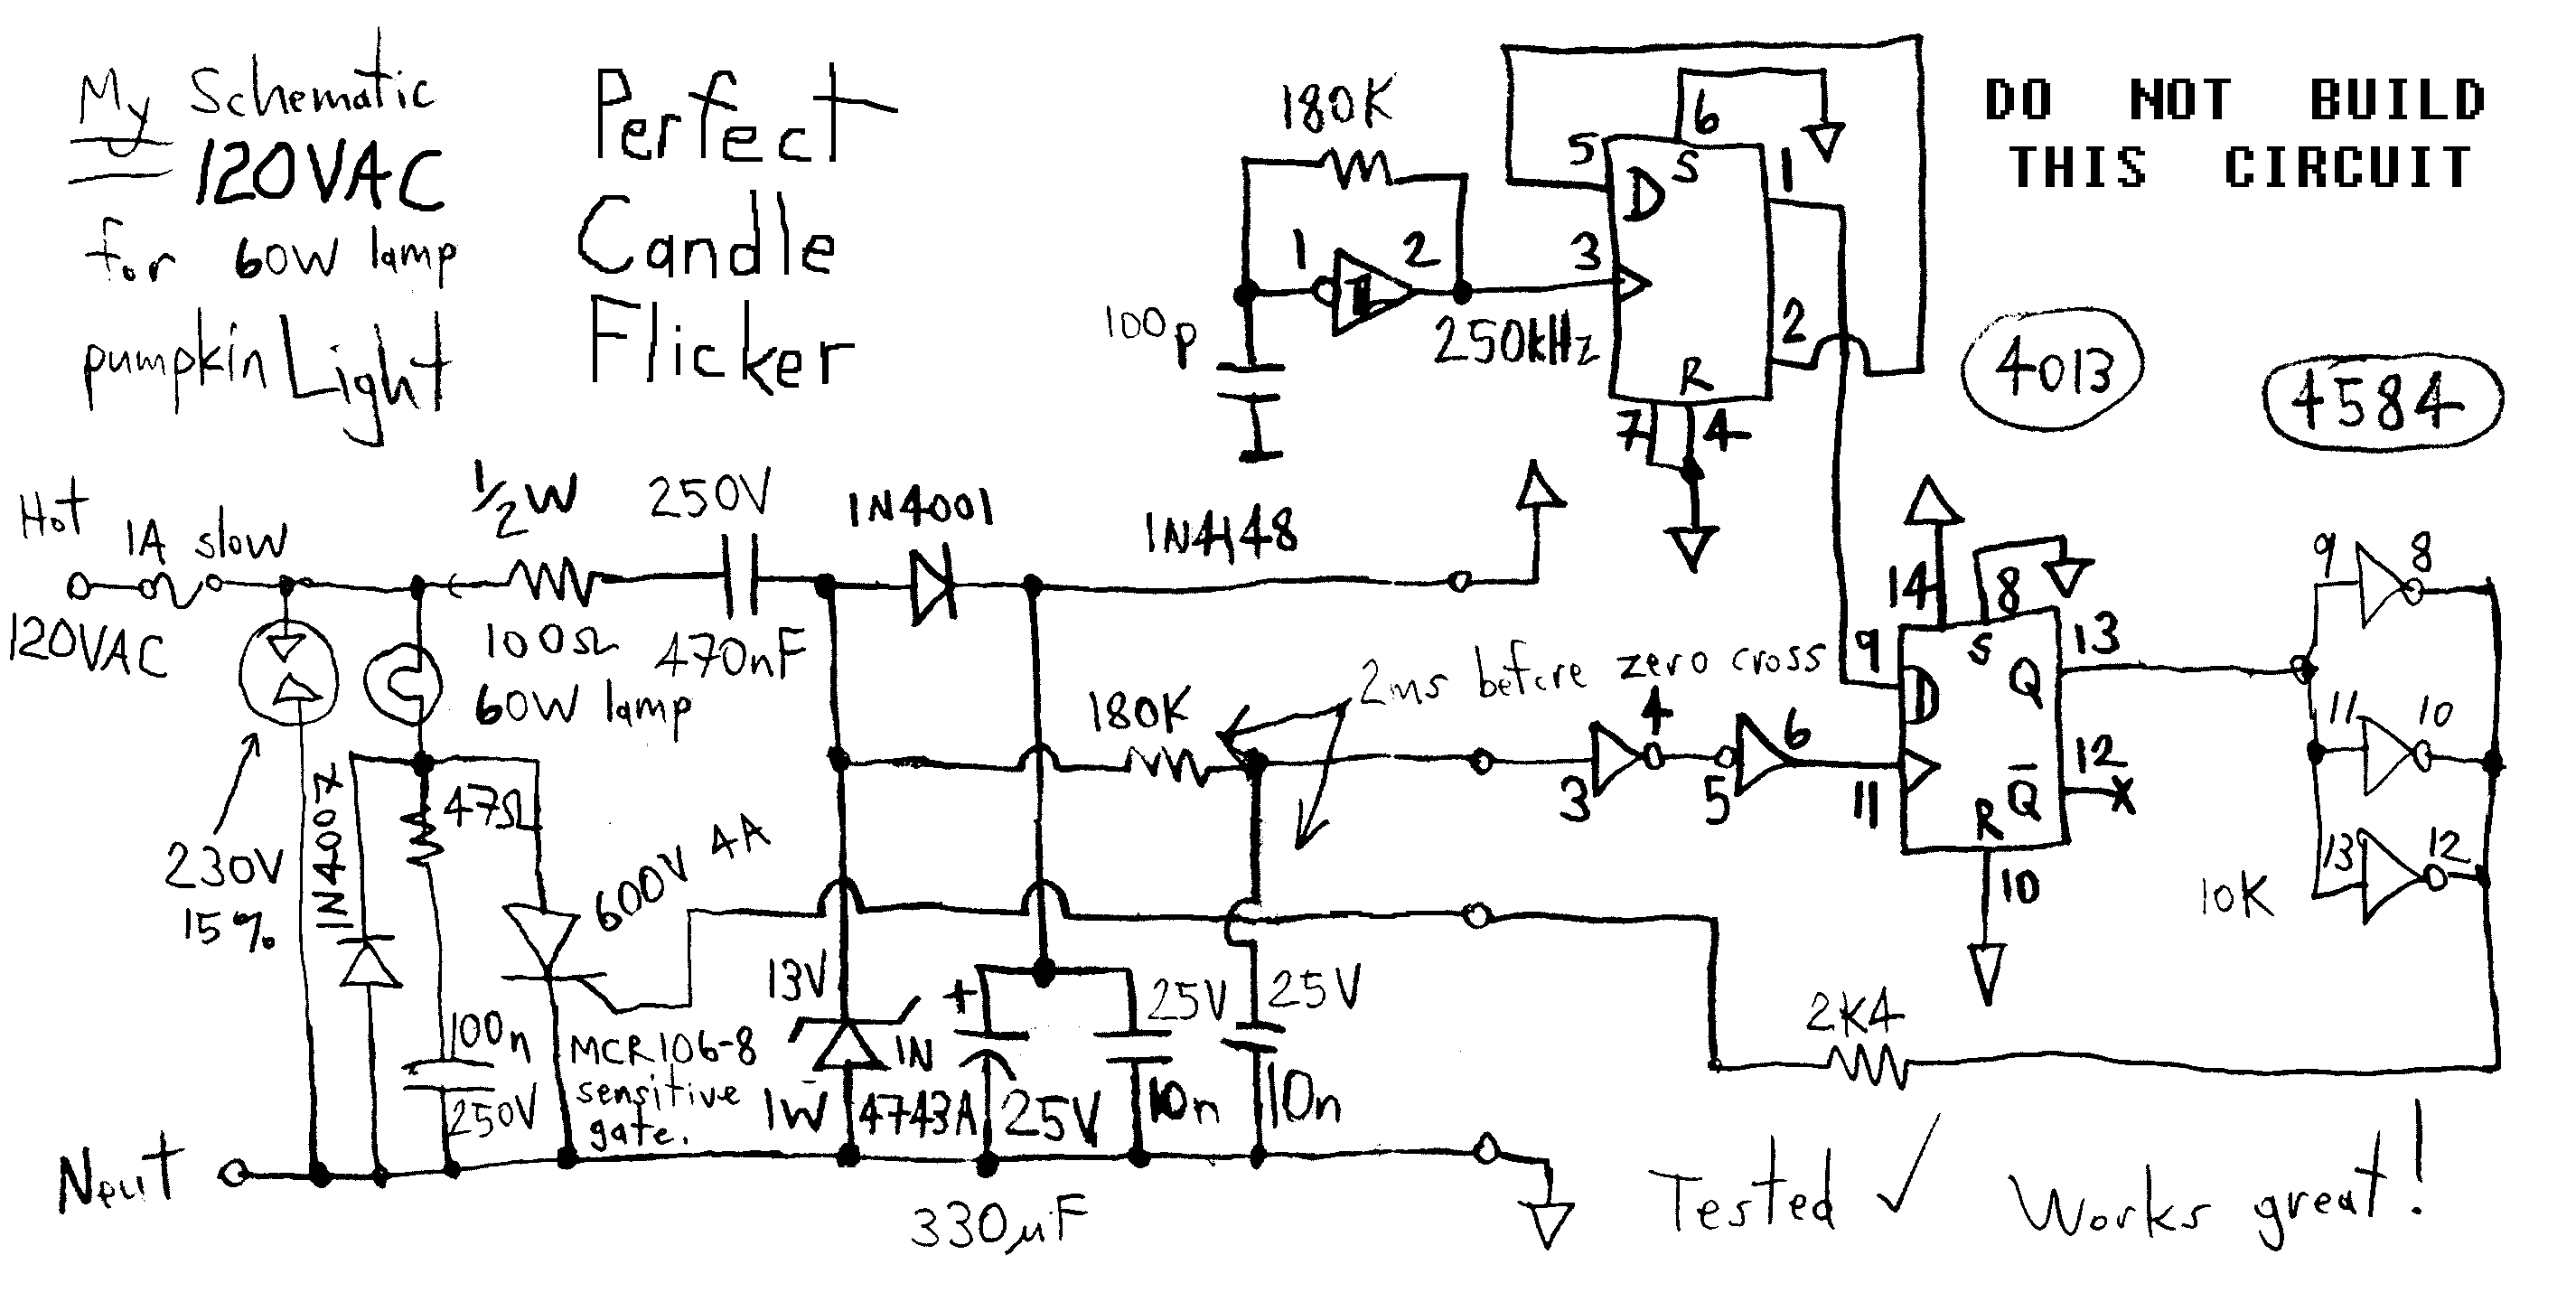 My Schematic
120VAC
for 60W lamp
pumpkin Light
Perfect
Candle
Flicker
DO NOT BUILD
THIS CIRCUIT
180K
1
2
100p
250kHz
5
D
S
6
1
3
2
R
7
4
4013
4584
Hot
1A slow
120VAC
1/2W
100Ω
250V
470nF
1N4001
1N4148
60W lamp
230V
15%
1N4007
47Ω
600V 4A
100n
250V
MCR106-8
sensitive
gate.
13V
1W
1N
4743A
+
25V
330µF
25V
10n
25V
10n
180K
2ms before zero cross
3
4
5
6
14
8
9
D
S
Q
13
11
R
Q̅
12
X
10
9
8
11
10
13
12
10K
2K4
Neut
Tested ✓ Works great!